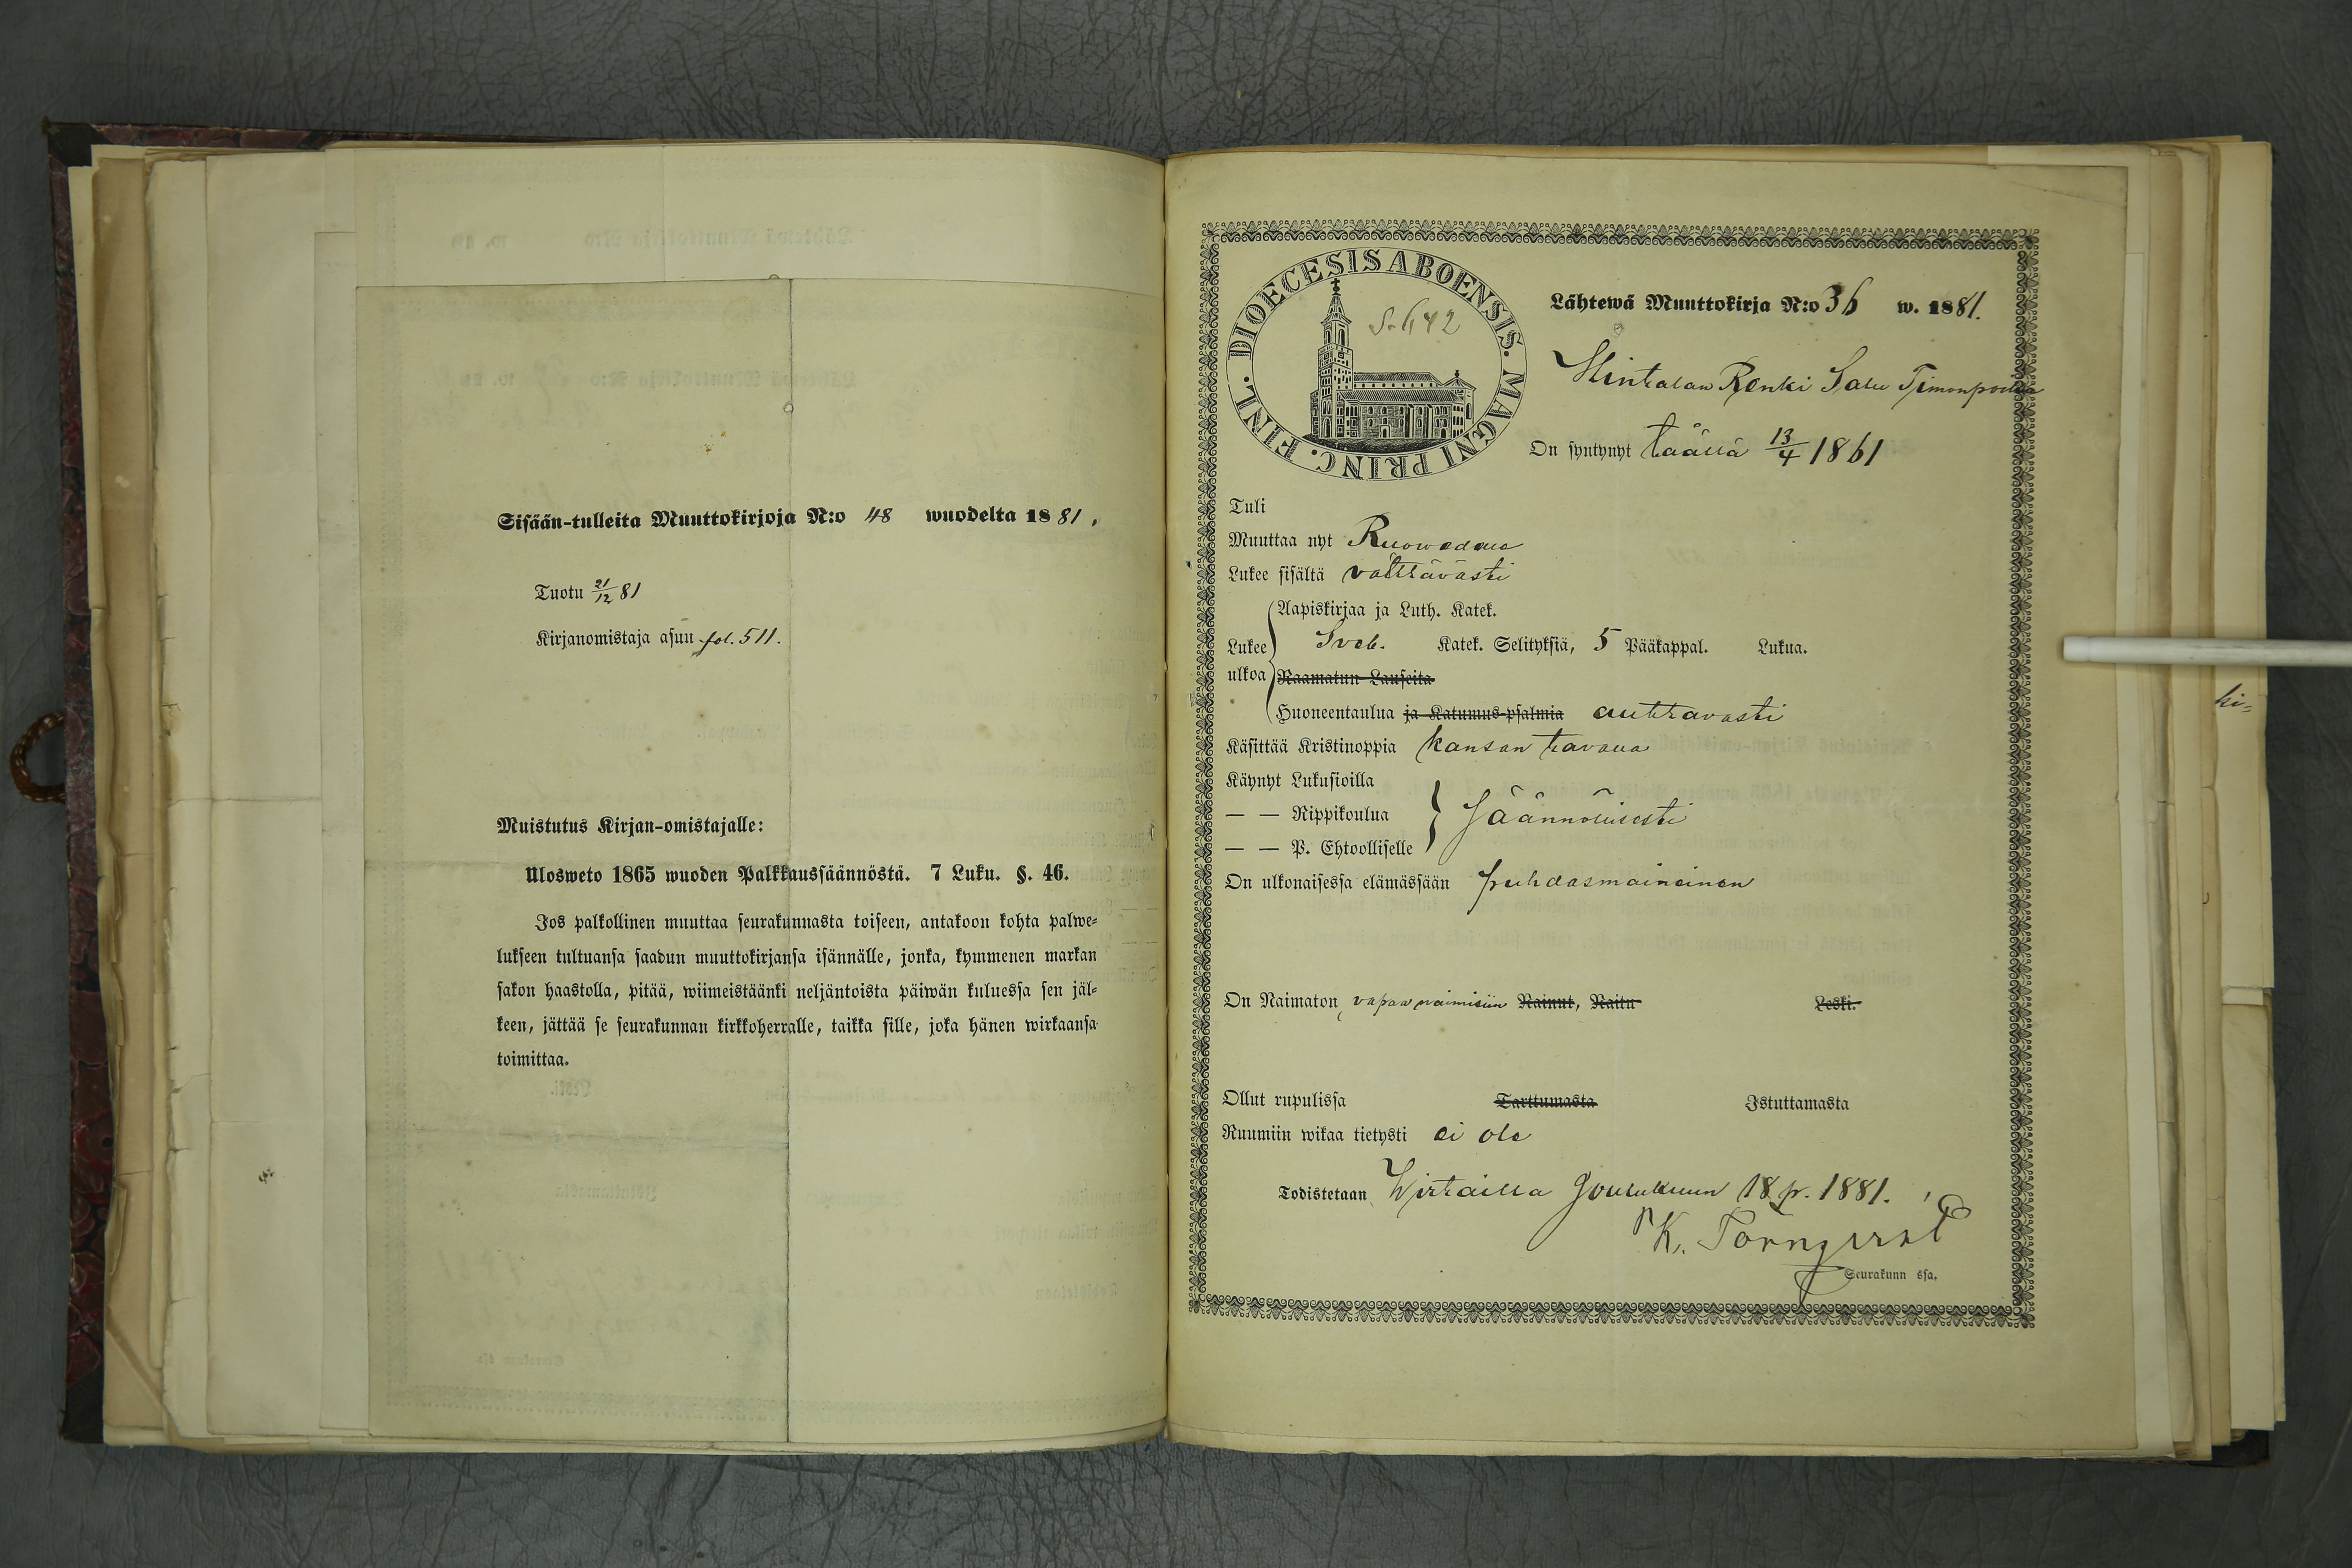 Sisään-tulleita Muuttokirjoja N:o 48 wuodelta 1881,
Tuotu 21/12 81
Kirjanomistaja asuu fol. 511.
Muistutus Kirjan-omistajalle:
Ulosweto 1865 wuoden Palkkaussäännöstä. 7 Luku. §. 46.
Jos palkollinen muuttaa seurakunnasta toiseen, antakoon kohta palwe-
lukseen tultuansa saadun muuttokirjansa isännälle, jonka, kymmenen markan
sakon haastolla, pitää, wiimeistäänki neljäntoista päiwän kuluessa sen jäl-
keen, jättää se seurakunnan kirkkoherralle, taikka sille, joka hänen wirkaansa
toimittaa.
DIOECESIS ABOENSIS. MAGNI PRINC. FINL.
S. 642
Lähtewä Muuttokirja N:o 36 w. 1881.
Renki Salu Timonpoika
On syntynyt täällä 13/4 1861
Tuli
Muuttaa nyt Ruowedelle
Lukee sisältä välttävästi
Aapiskirjaa ja Luth. Katek.
Lukee ulkoa Sveb. Katek. Selityksiä, 5 Pääkappal. Lukua.
Raamatun Lauseita
Huoneentaulua ja Katumus-psalmia auttavasti
Käsittää Kristinoppia kansan tavalla
Käynyt Lukusioilla
— — Rippikoulua Säännöllisesti
— — P. Ehtoolliselle
On ulkonaisessa elämässään puhdasmaineinen
On Naimaton, vapaa naimisiin Nainut, Naitu Leski.
Ollut rupulissa Tarttumasta Istuttamasta
Ruumiin wikaa tietysti ei ole
Todistetaan Wirtailla Joulukuun 18 p. 1881.
K. Törnqvist
Seurakunn ssa.
ki-